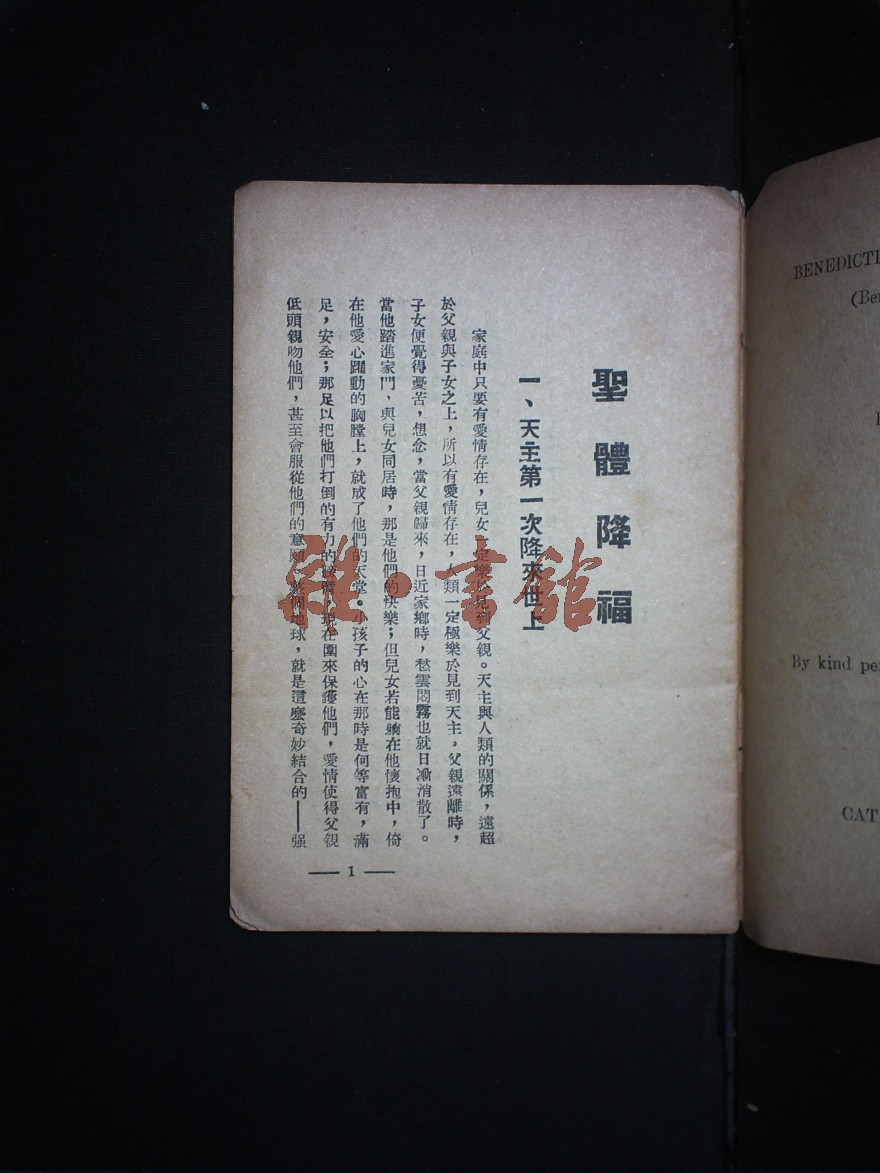 聖體降福
一、天主第一次降來世上
家庭中只要有愛情存在，兒女一定樂於見到父親。天主與人類的關係，遠超
於父親與子女之上，所以有愛情存在，人類一定極樂於見到天主。父親遠離時，
子女便覺得憂苦，想念，當父親歸來，日近家鄉時，愁雲悶霧也就日漸消散了。
當他踏進家門，與兒女同居時，那是他們的快樂；但兒女若能躺在他懷抱中，倚
在他愛心躍動的胸膛上，就成了他們的天堂。小孩子的心在那時是何等富有，滿
足，安全；那足以把他們打倒的有力的，現在圍來保護他們，愛情使得父親
低頭親吻他們，甚至會服從他們的意願。整個地球，就是這麼奇妙結合的——强
— 1 —
雜·書館
BENEDICTI
(Ben
By kind per
CAT